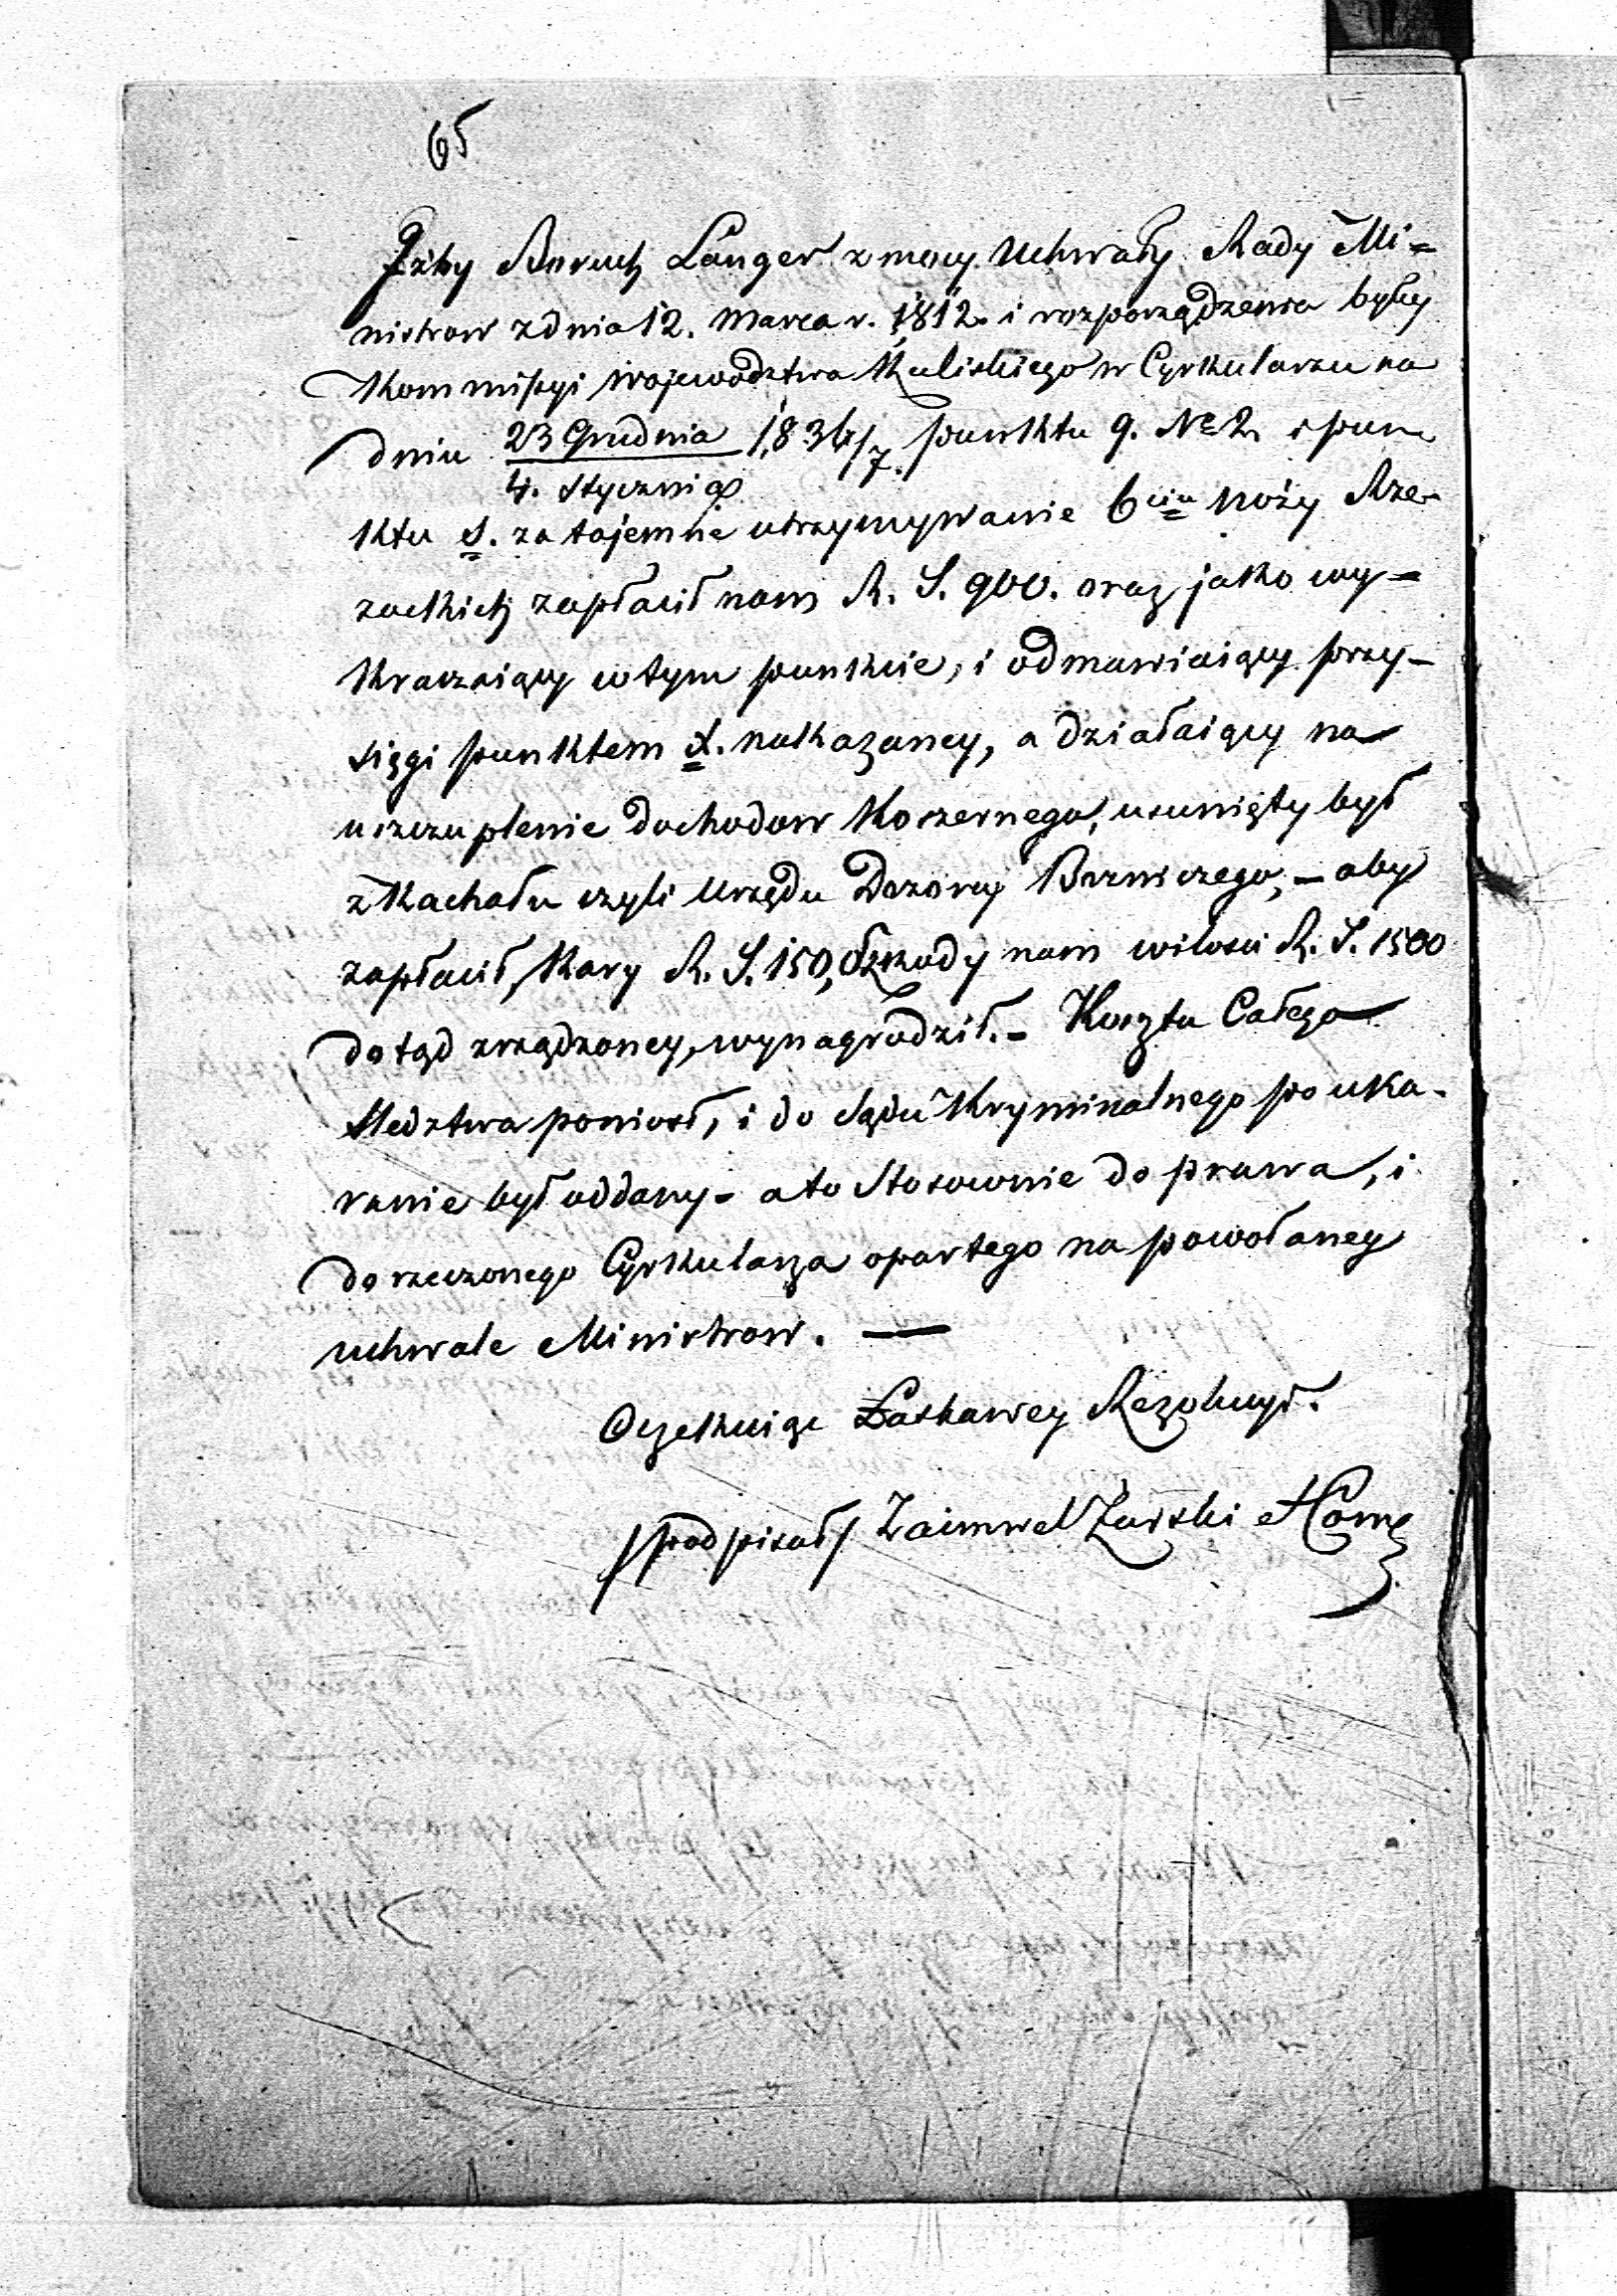 65
Iżby Boruch Langer z mocy Uchwały Rady Mi=
nistrow z dnia 12. Marca r. 1812. i rozporządzenia byłey
Kommissyi Wojewodztwa Kaliskiego w Cyrkularzu na
dniu 23 Grudnia 1836/7. punktu 9. No 2. i pun
4. Stycznia
ktu s. za tajemne utrzymywanie 6ciu noży Rze-
zackich zapłacił nam R. S. 900. oraz jako wy=
kraczaiący w tym punkcie, i odmawiaiący przy-
sięgi punktem x. nakazaney, a działaiący na
uszczuplenie dochodow Koszernego, usunięty był
z Kachału czyli Urzędu Dozorcy Bozniczego, - aby
zapłacił, Kary R. S. 150, Szkody nam w ilości R. S. 1500
dotąd zrządzoney, wynagrodził. - Koszta Całego
śledztwa poniosł, i do Sądu Kryminalnego po uka-
ranie był oddany - a to Stosownie do prawa, i
do rzeczonego Cyrkularza opartego na powołaney
uchwale Ministrow. —
Oczekuiąc Łaskawey Rezolucyi.
/podpisał/ Zaimwel Żurski